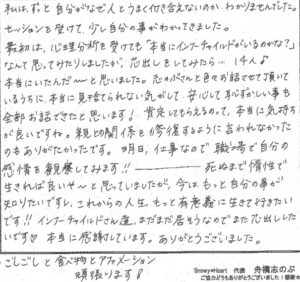 私は、ずっと自分がなぜ人とうまく付き合えないのか、わかりませんでした。
セッションを受けて、少し自分の事がわかってきました。
最初は、心理分析を受けても「本当にインナーチャイルドがいるのかな?」
なんて思ってたりしましたが、芯出しをしてみたら… 14人♪
本当にいたんだ〜と思いました。志のぶさんと色々お話させて頂いて
いるうちに、本当に見捨てられない気がして、安心して恥ずかしい事も
全部お話できたと思います! 肯定してもらえるのって、本当に気持ち
が良いですね。親との関係を修復するように言われなかった
のもありがたかったです。明日、仕事なので職場で自分の
感情を観察してみます!! ――― 死ぬまで惰性で
生きれば良いや〜と思っていましたが、今は、もっと自分の事が
知りたいですし、これからの人生、もっと有意義に生きて行きたい
です!! インナーチャイルドさん達、まだまだ居そうなのでまた芯出ししたい
です♡ 本当に感謝しています。ありがとうございました。
ごしごしと食べ物とアファメーション
頑張ります!
Snowy♥Heart 代表 舟橋志のぶ
ご協力どうもありがとうございました!感謝☆